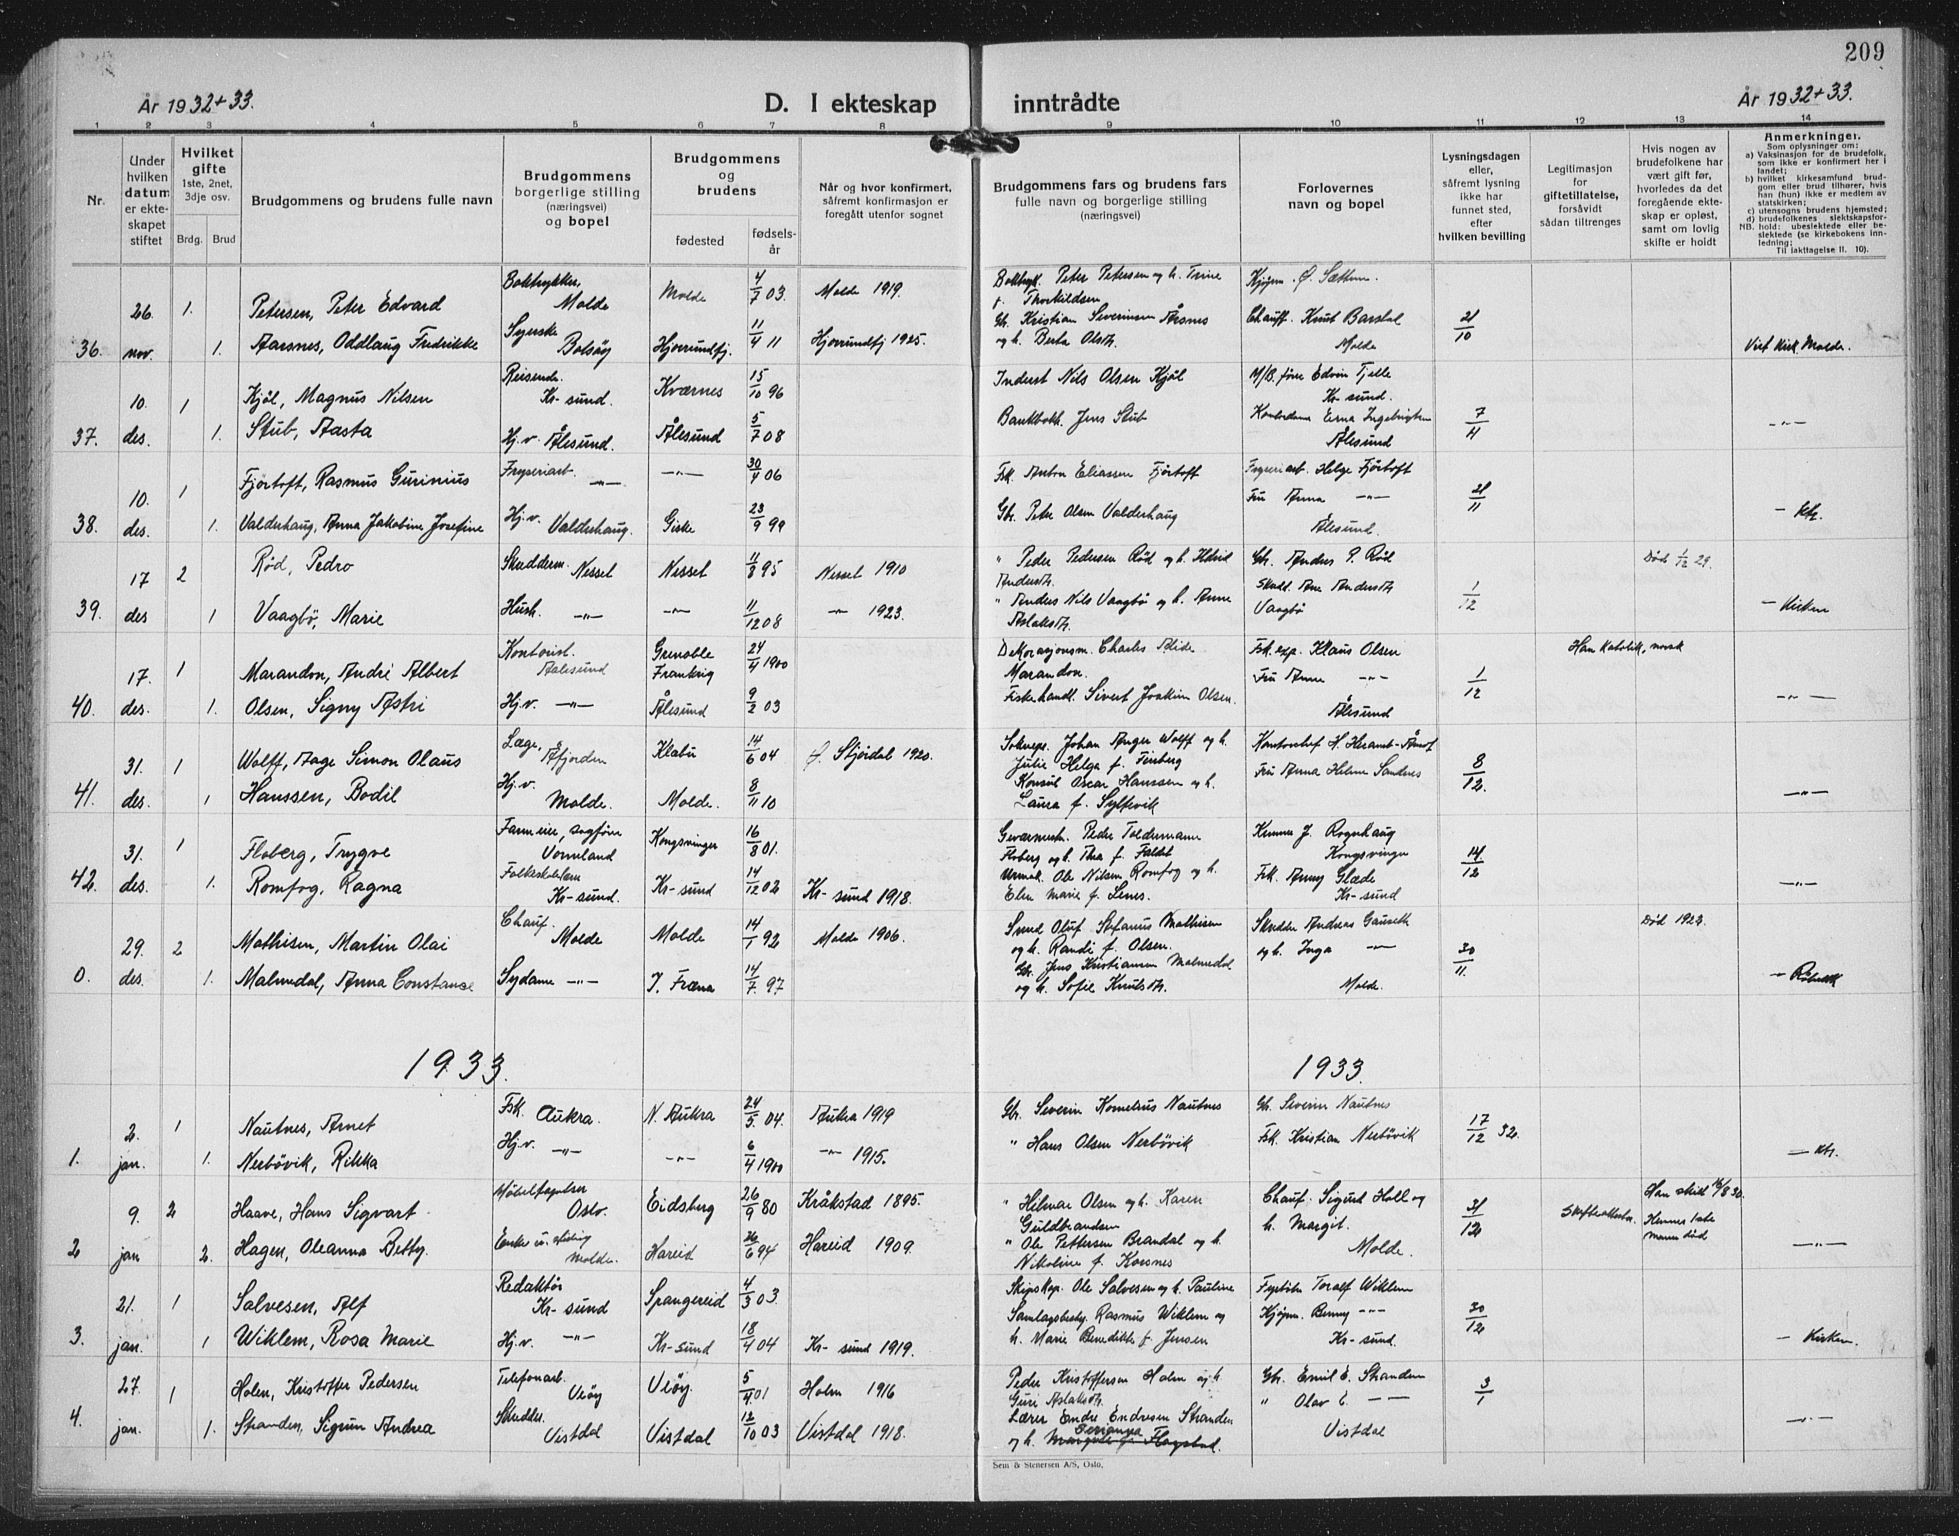 209
År 1932+33.
D. I ekteskap inntrådte
År 1932+33.
1 2 3 4 5 6 7 8 9 10 11 12 13 14
Nr.
Under hvilken datum er ekteskapet stiftet
Hvilket gifte 1ste, 2net, 3dje osv.
Brdg. Brud
Brudgommens og brudens fulle navn
Brudgommens borgerlige stilling (næringsvei) og bopel
Brudgommens og brudens
fødested
fødselsår
Når og hvor konfirmert, såfremt konfirmasjon er foregått utenfor sognet
Brudgommens fars og brudens fars fulle navn og borgerlige stilling (næringsvei)
Forlovernes navn og bopel
Lysningsdagen eller, såfremt lysning ikke har funnet sted, efter hvilken bevilling
Legitimasjon for giftetillatelse, forsåvidt sådan tiltrenges
Hvis nogen av brudefolkene har vært gift før, hvorledes da det foregående ekteskap er opløst, samt om lovlig skifte er holdt
Anmerkninger.
Som oplysninger om:
a) Vaksinasjon for de brudefolk, som ikke er konfirmert her i landet;
b) hvilket kirkesamfund brudgom eller brud tilhører, hvis han (hun) ikke er medlem av statskirken;
c) utensogns brudens hjemsted;
d) brudefolkenes slektskapsforhold: ubeslektede eller beslektede (se kirkebokens innledning; Til iakttagelse II. 10).
NB.
26. 1. Petersen, Peter Edvard Boktrykker, Molde Molde 4/7 03. Molde 1919. Boktryk. Peter Petersen og h. Trine f. Thorkildsen Kjøpm. Ø. Sættem.
36. nov. 1. Aarsnes, Oddlaug Fredrikke Syerske Bolsøy Hjørrundfj. 11/4 11 Hjørrundfj 1925. Gb. Kristian Severinsen Årsnes og h. Berta Olsdt. Chauff. Knut Barstad Molde 21/10 Viet kirk. Molde.
10. 1 Kjøl, Magnus Nilsen Reisende. Kr-sund. Kværnes 15/10 96 Inderst Nils Olsen Kjøl M/B. fører Edvin Fjelle Kr-sund.
37. des. 1. Stub, Aasta Hj.v. Ålesund. Ålesund 5/7 08 Bankbokh. Jens Stub Kontordame Erna Ingebrigtsen Ålesund 7/11 —"—
10. 1 Fjørtoft, Rasmus Gurinius Fryseriarb. —"— —"— 30/4 06 Fsk. Anton Eliassen Fjørtoft Fryseriarb. Helge Fjørtoft
38. des. 1. Valderhaug, Anna Jakobine Josefine Hj.v. Valderhaug. Giske 23/9 99 Gb. Peter Olsen Valderhaug Fru Anna —"— Ålesund. 21/11 — ktr.
17 2 Rød, Pedro Skredderm. Nesset Nesset 11/8 95 Nesset 1910 " Peder Pedersen Rød og h. Eldrid Andersdt. Gb. Anders P. Rød Død 1/12 29.
39. des 1 Vaagbø, Marie Hush. —"— —"— 11/12 08 —"— 1923. " Anders Nils Vaagbø og h. Anne Aslaksdt. Skald. Ane Andersdt. Vaagbø 1/12 — Kirken
17. 1 Marandon, André Albert Kontorist. Aalesund Grenoble Frankrig 24/4 1900 Dekorasjonsm. Charles Alide Marandon. Fsk.exp. Klaus Olsen Han katolik, norsk
40. des. 1. Olsen, Signy Astri Hj.v. —"— Ålesund 9/2 03 Fiskehandl. Sivert Joakim Olsen. Fru Anne —"— Ålesund 1/12 —"—
31. 1 Wolff, Aage Simon Olaus Læge, Åfjorden Klæbu 14/6 04 Ø. Stjørdal 1920. Sokneps. Johan Anger Wolff og h. Julie Helga f. Finberg
41. des. 1 Hanssen, Bodil Hj.v. Molde. Molde. 8/11 10 Konsul Oscar Hanssen og h. Laura f. Sylfevik Fru Anna Helene Sandnes 8/12. —"—
31. 1 Floberg, Trygve Farmeier, sagfører Vormland Kongsvinger 16/8 01. Geværmestr. Peder Toldermann Floberg og h. Thea f. Faldet Kemner J. Rognhaug Kongsvinger
42. des. 1. Romfog, Ragna Folkeskolelær. Kr-sund. Kr-sund 14/12 02 Kr-sund 1918. Urmak. Ole Nilsen Romfog og h. Elen Marie f. Lenes. Frk. Anny Glæde Kr-sund 14/12 —"—
29. 2 Mathisen, Martin Olai Chauf. Molde Molde 14/1 92 Molde 1906. Smed Oluf Stefanus Mathisen og h. Randi f. Olsen. Skredder Andreas Gauseth og h. Inga —"— Død 1923.
0. des. 1. Malmedal, Anna Constanse Sydame —"— Y. Fræna 14/7. 97 Gb. Jens Kristiansen Malmedal og h. Sofie Knutsdt. Molde. 30/11.
1933. 1933.
2. 1 Nautnes, Arnet Fsk. Aukra N. Aukra 24/5. 04. Aukra 1919 Gb. Severin Kornelius Nautnes Gb. Severin Nautnes
1. jan. 1. Nerbøvik, Rikka Hj.v. —"— —"— 6/4 1900 —"— 1915. " Hans Olsen Nerbøvik Fsk. Kristian Nerbøvik 17/12 32. — ktr.
9. 2 Haave, Hans Sigvart Møbeltapetser Oslo. Eidsberg 26/9 80 Kråkstad 1895. " Hilmar Olsen og h. Karen Guldbrandsen Chauf. Sigurd Holl og h. Margit. Skifteattester. Han skilt 16/8 30.
2 jan 2. Hagen, Oleanna Betty. Molde. Hareid 26/6 94 Hareid 1909. " Ole Pettersen Brandal og h. Nikoline f. Korsnes Molde. 31/12 Hennes 1ste mann død —"—
21. 1 Salvesen, Alf Redaktør Kr-sund Spangereid 4/3 03. Skipskap. Ole Salvesen og h. Pauline Toralf Wiklem
3. jan. 1 Wiklem, Rosa Marie Hj.v. —"— Kr-sund 18/4 04 Kr-sund 1919. Samlagsbesty. Rasmus Wiklem og h. Marie Benedikte f. Jensen Kjøpm. Benny —"— Kr-sund. 30/12 — Kirken.
27. 1 Holen, Kristoffer Pedersen Telefonarb. Veøy Veøy. 5/4. 01 Holm 1916 Peder Kristoffersen Holm og h. Guri Aslaksdt. Gb. Emil E. Stranden
4. jan. 1. Stranden, Sigrun Andrea Skredder. Vistdal Vistdal 12/10 03 Vistdal 1918. Lærer Endre Endresen Stranden og h. Serianna Flogstad. " Olav E. —"— Vistdal 3/1 —"—
Sem & Stenersen A/S, Oslo.